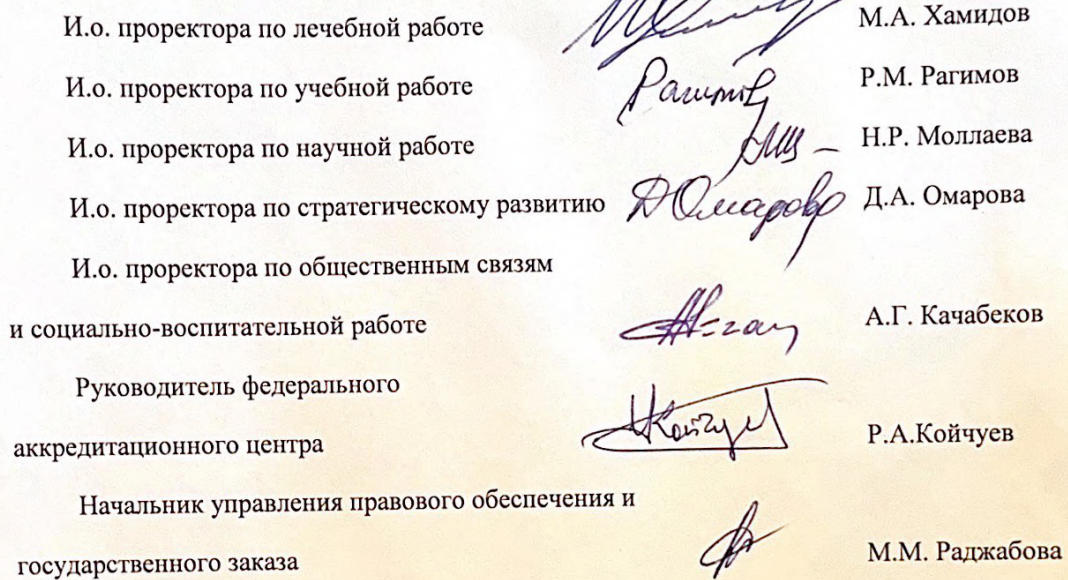 И.о. проректора по лечебной работе М.А. Хамидов
И.о. проректора по учебной работе Рагимов Р.М. Рагимов
И.о. проректора по научной работе Н.Р. Моллаева
И.о. проректора по стратегическому развитию ДОмарова Д.А. Омарова
И.о. проректора по общественным связям
и социально-воспитательной работе А.Г. Качабеков
Руководитель федерального
аккредитационного центра Р.А.Койчуев
Начальник управления правового обеспечения и
государственного заказа М.М. Раджабова